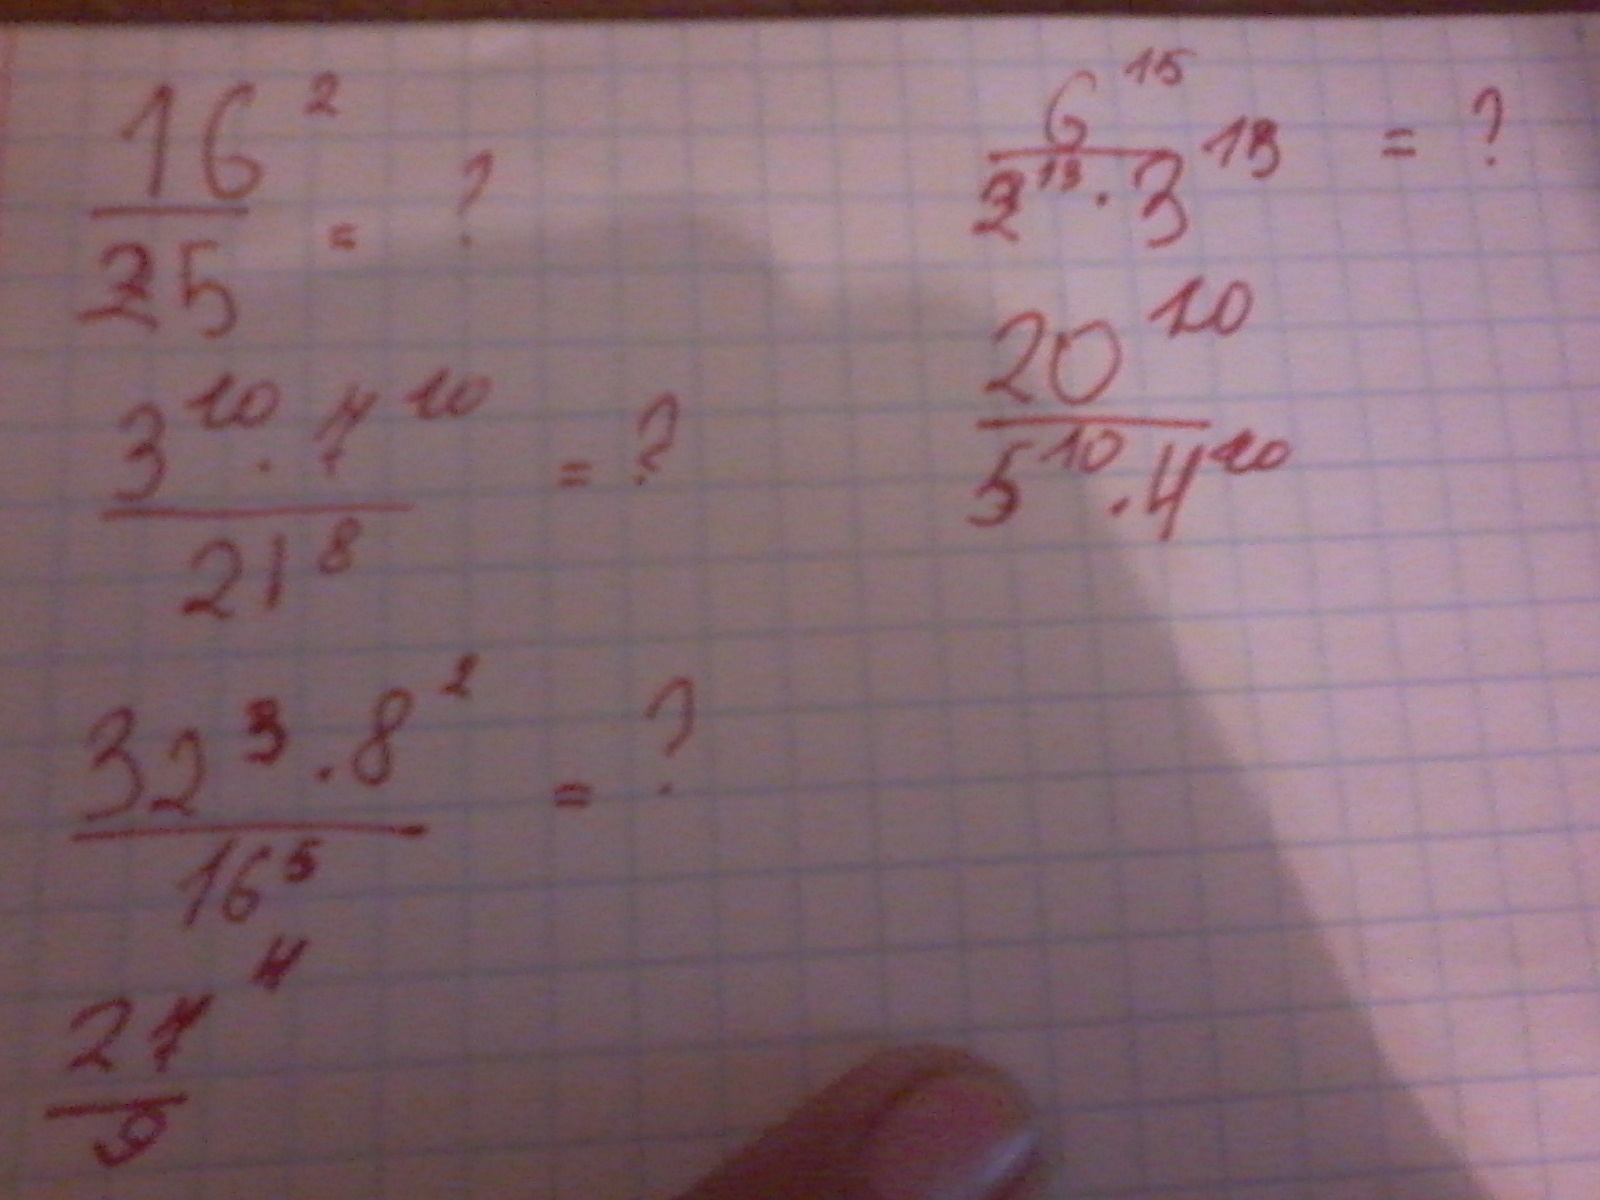 16² / 25 = ?
3¹⁰ · 7¹⁰ / 21⁸ = ?
32³ · 8² / 16⁵ = ?
27⁴ / 9
6¹⁵ / 2¹³ · 3¹³ = ?
20²⁰ / 5¹⁰ · 4²⁰